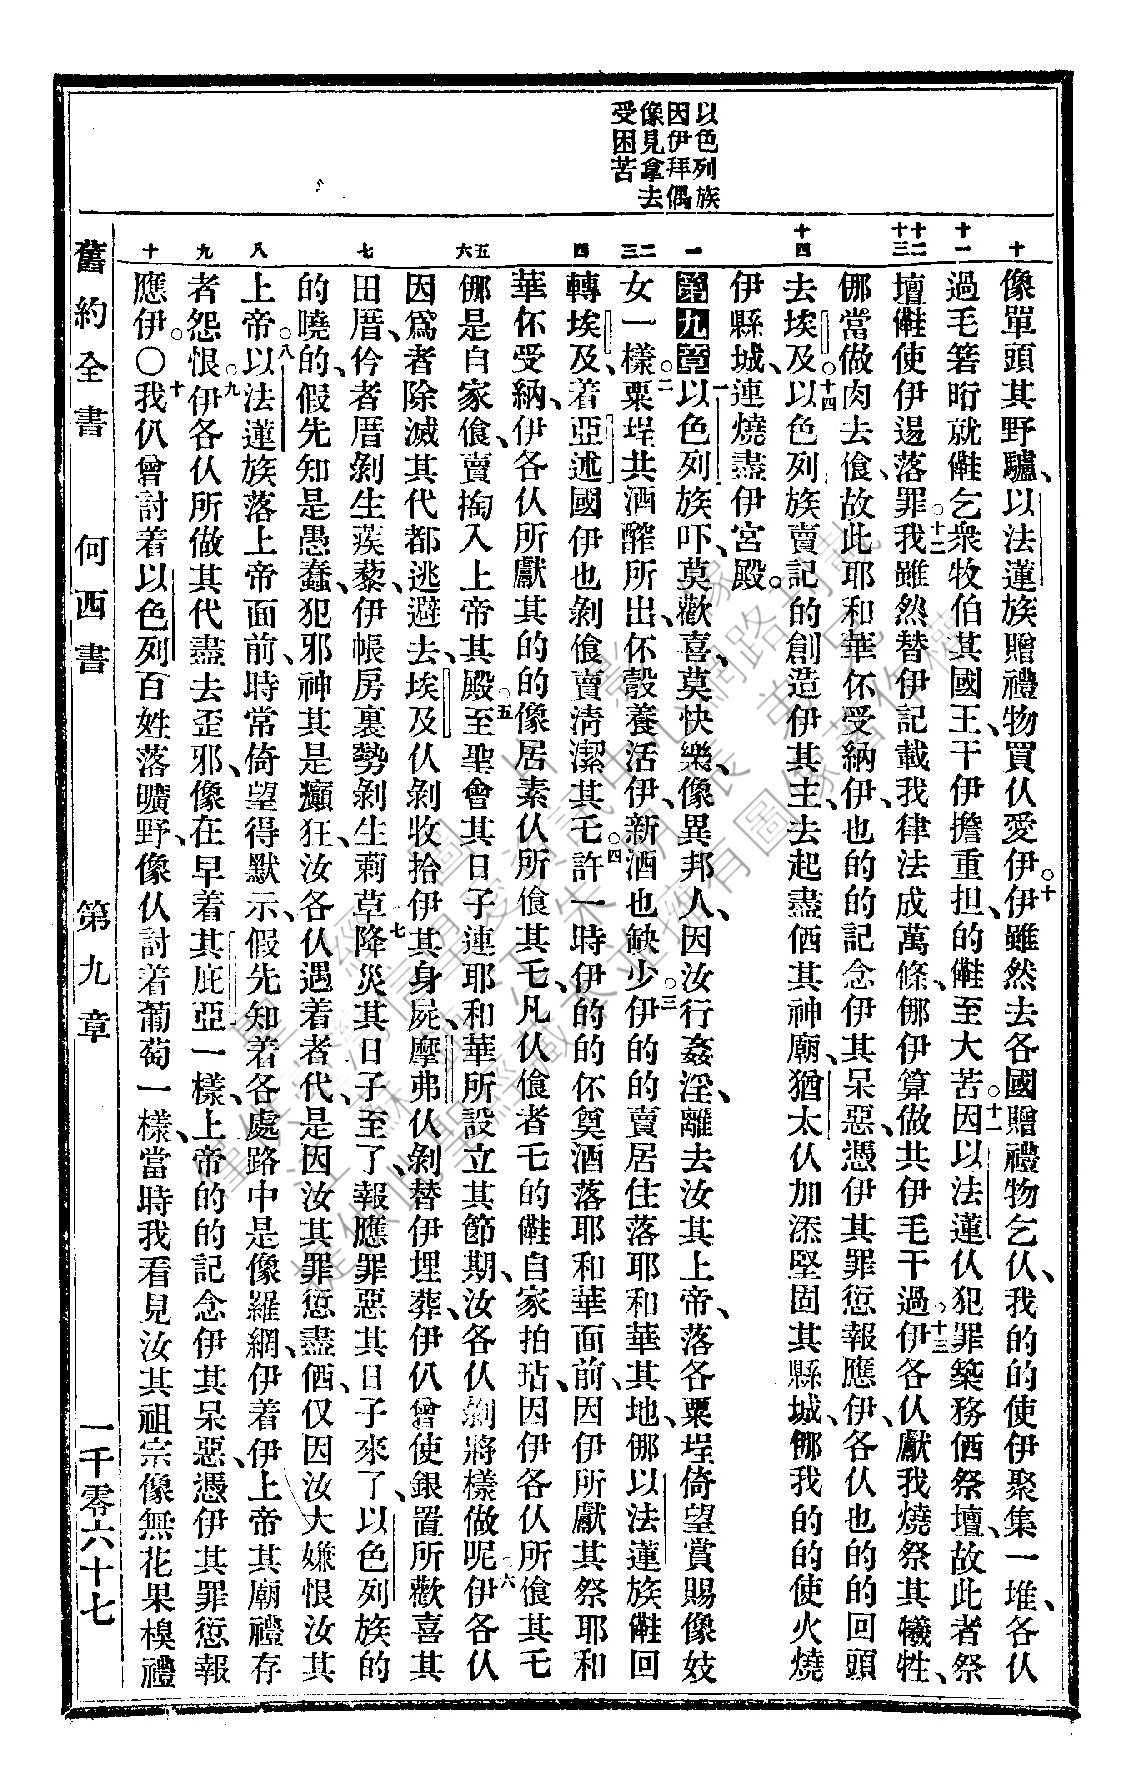 以色列族
因伊拜偶
像見拿去
受困苦
十
十一
十二
十三
十四
一
二
三
四
五
六
七
八
九
十
像單頭其野驢、以法蓮族贈禮物買仈愛伊。十伊雖然去各國贈禮物乞仈、我的的使伊聚集一堆、各仈
過毛箬晌就難乞衆牧伯其國王、干伊擔重担、的難至大苦。十一因以法蓮仈犯罪築務価祭壇、故此者祭
壇難使伊遏落罪。十二我雖然替伊記載我律法成萬條、哪伊算做共伊毛干過。十三伊各仈獻我燒祭其犧牲、
哪當做肉去飧、故此耶和華伓受納伊、也的的記念伊其呆惡、憑伊其罪愆報應伊、各仈也的的回頭
去埃及。十四以色列族賣記的創造伊其主、去起盡価其神廟、猶太仈加添堅固其縣城、哪我的的使火燒
伊縣城、連燒盡伊宮殿。
第九章 一以色列族吓、莫歡喜、莫快樂、像異邦人、因汝行姦淫、離去汝其上帝、落各粟埕倚望賞賜像妓
女一樣。二粟埕共酒醡所出、伓彀養活伊、新酒也缺少。三伊的的賣居住落耶和華其地、哪以法蓮族難回
轉埃及、着亞述國伊也剝飧賣淸潔其乇。四許一時伊的的伓奠酒落耶和華面前、因伊所獻其祭、耶和
華伓受納、伊各仈所獻其的的像居素仈所飧其乇、凡仈飧者乇的難自家拍玷、因伊各仈所飧其乇
哪是自家飧、賣掏入上帝其殿。五至聖會其日子連耶和華所設立其節期、汝各仈剝將樣做呢。六伊各仈
因爲者除滅其代都逃避去、埃及仈剝收拾伊其身屍、摩弗仈剝替伊埋葬、伊仈曾使銀置所歡喜其
田厝、伶者厝剝生蒺藜、伊帳房裏勢剝生莿草。七降災其日子至了、報應罪惡其日子來了、以色列族的
的曉的、假先知是愚蠢、犯邪神其是癲狂、汝各仈遇着者代、是因汝其罪愆盡価、仅因汝大嫌恨汝其
上帝。八以法蓮族落上帝面前、時常倚望得默示、假先知着各處路中是像羅網、伊着伊上帝其廟禮存
者怨恨。九伊各仈所做其代盡去歪邪、像在早着其庇亞一樣、上帝的的記念伊其呆惡、憑伊其罪愆報
應伊。〇十我仈曾討着以色列百姓落曠野、像仈討着葡萄一樣、當時我看見汝其祖宗像無花果樹禮
舊約全書 何西書 第九章 一千零六十七